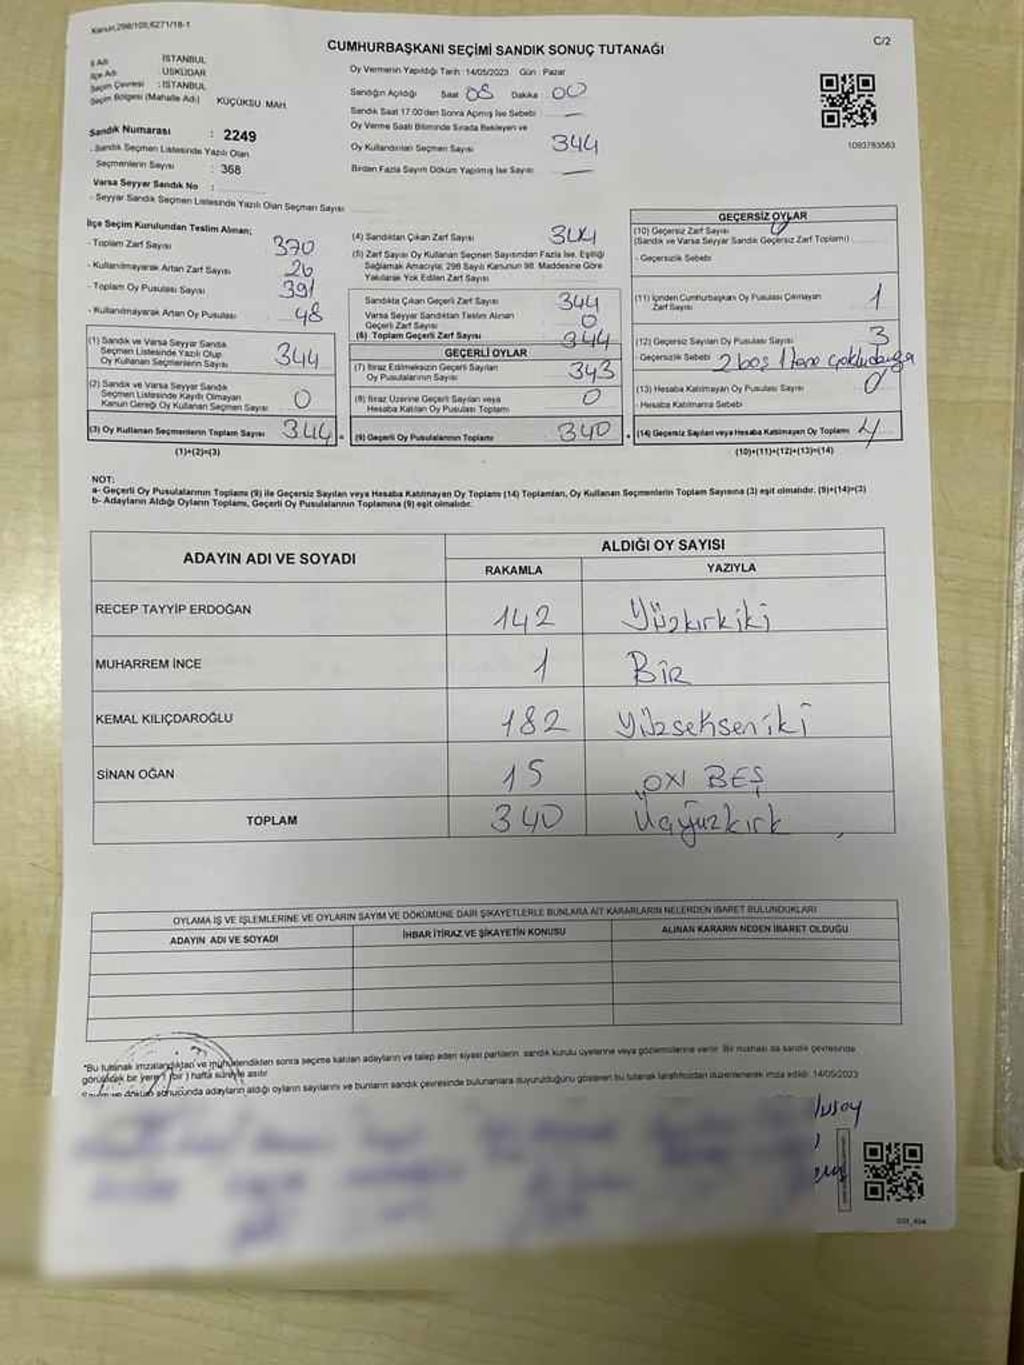 Kanun;298/105,6271/18-1
C/2
CUMHURBAŞKANI SEÇİMİ SANDIK SONUÇ TUTANAĞI
İl Adı : İSTANBUL
İlçe Adı : ÜSKÜDAR
Seçim Çevresi : İSTANBUL
Seçim Bölgesi (Mahalle Adı) KÜÇÜKSU MAH.
Sandık Numarası : 2249
- Sandık Seçmen Listesinde Yazılı Olan
Seçmenlerin Sayısı : 368
Varsa Seyyar Sandık No :
- Seyyar Sandık Seçmen Listesinde Yazılı Olan Seçmen Sayısı
Oy Vermenin Yapıldığı Tarih : 14/05/2023 Gün : Pazar
Sandığın Açıldığı Saat 08 Dakika : 00
Sandık Saat 17:00'den Sonra Açılmış İse Sebebi : —
Oy Verme Saati Bitiminde Sırada Bekleyen ve
Oy Kullandırılan Seçmen Sayısı 344
Birden Fazla Sayım Döküm Yapılmış İse Sayısı —
1093783563
İlçe Seçim Kurulundan Teslim Alınan;
- Toplam Zarf Sayısı 370
- Kullanılmayarak Artan Zarf Sayısı 26
- Toplam Oy Pusulası Sayısı 391
- Kullanılmayarak Artan Oy Pusulası 48
(1) Sandık ve Varsa Seyyar Sandık
Seçmen Listesinde Yazılı Olup
Oy Kullanan Seçmenlerin Sayısı 344
(2) Sandık ve Varsa Seyyar Sandık
Seçmen Listesinde Kayıtlı Olmayan
Kanun Gereği Oy Kullanan Seçmen Sayısı 0
(3) Oy Kullanan Seçmenlerin Toplam Sayısı 344 =
(1)+(2)=(3)
(4) Sandıktan Çıkan Zarf Sayısı 344
(5) Zarf Sayısı Oy Kullanan Seçmen Sayısından Fazla İse, Eşitliği
Sağlamak Amacıyla; 298 Sayılı Kanunun 98. Maddesine Göre
Yakılarak Yok Edilen Zarf Sayısı
Sandıkta Çıkan Geçerli Zarf Sayısı 344
Varsa Seyyar Sandıktan Teslim Alınan
Geçerli Zarf Sayısı 0
(6) Toplam Geçerli Zarf Sayısı 344
GEÇERLİ OYLAR
(7) İtiraz Edilmeksizin Geçerli Sayılan
Oy Pusulalarının Sayısı 343
(8) İtiraz Üzerine Geçerli Sayılan veya
Hesaba Katılan Oy Pusulası Toplamı 0
(9) Geçerli Oy Pusulalarının Toplamı 340
GEÇERSİZ OYLAR
(10) Geçersiz Zarf Sayısı
(Sandık ve Varsa Seyyar Sandık Geçersiz Zarf Toplamı)
- Geçersizlik Sebebi
(11) İçinden Cumhurbaşkanı Oy Pusulası Çıkmayan
Zarf Sayısı 1
(12) Geçersiz Sayılan Oy Pusulası Sayısı 3
- Geçersizlik Sebebi 2 boş 1 tane
(13) Hesaba Katılmayan Oy Pusulası Sayısı 0
- Hesaba Katılmama Sebebi
(14) Geçersiz Sayılan veya Hesaba Katılmayan Oy Toplamı 4
(10)+(11)+(12)+(13)=(14)
NOT:
a- Geçerli Oy Pusulalarının Toplamı (9) ile Geçersiz Sayılan veya Hesaba Katılmayan Oy Toplamı (14) Toplamları, Oy Kullanan Seçmenlerin Toplam Sayısına (3) eşit olmalıdır. (9)+(14)=(3)
b- Adayların Aldığı Oyların Toplamı, Geçerli Oy Pusulalarının Toplamına (9) eşit olmalıdır.
ADAYIN ADI VE SOYADI ALDIĞI OY SAYISI
RAKAMLA YAZIYLA
RECEP TAYYİP ERDOĞAN 142 Yüzkırkiki
MUHARREM İNCE 1 BİR
KEMAL KILIÇDAROĞLU 182 Yüzseksen iki
SİNAN OĞAN 15 ON BEŞ
TOPLAM 340 Üçyüzkırk
OYLAMA İŞ VE İŞLEMLERİNE VE OYLARIN SAYIM VE DÖKÜMÜNE DAİR ŞİKAYETLERLE BUNLARA AİT KARARLARIN NELERDEN İBARET BULUNDUKLARI
ADAYIN ADI VE SOYADI İHBAR İTİRAZ VE ŞİKAYETİN KONUSU ALINAN KARARIN NEDEN İBARET OLDUĞU
*Bu tutanak imzalandıktan ve mühürlendikten sonra seçime katılan adayların ve talep eden siyasi partilerin sandık kurulu üyelerine veya gözlemcilerine verilir. Bir nüshası da sandık çevresinde
görülecek bir yere ( bir ) hafta süreyle asılır
Sayım ve döküm sonucunda adayların aldığı oyların sayılarını ve bunların sandık çevresinde bulunanlara duyurulduğunu gösteren bu tutanak tarafımızdan düzenlenerek imza edildi. 14/05/2023